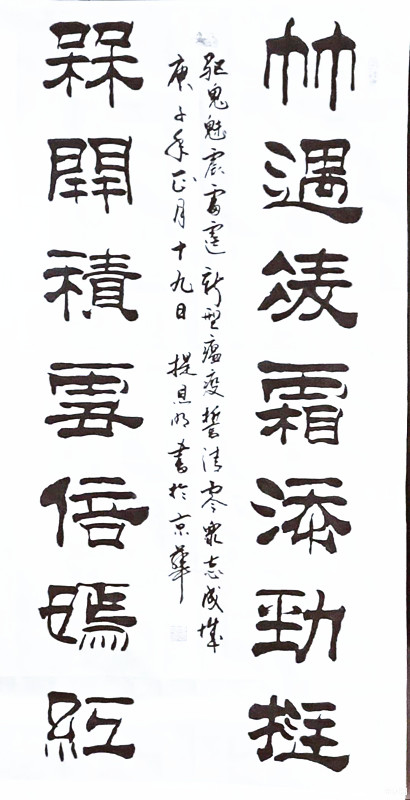 竹遇凌霜添勁挺
驱鬼魅震雷霆新型瘟疫誓清零眾志成城
庚子年正月十九日 書於京華
槑開積雪倍嫣紅